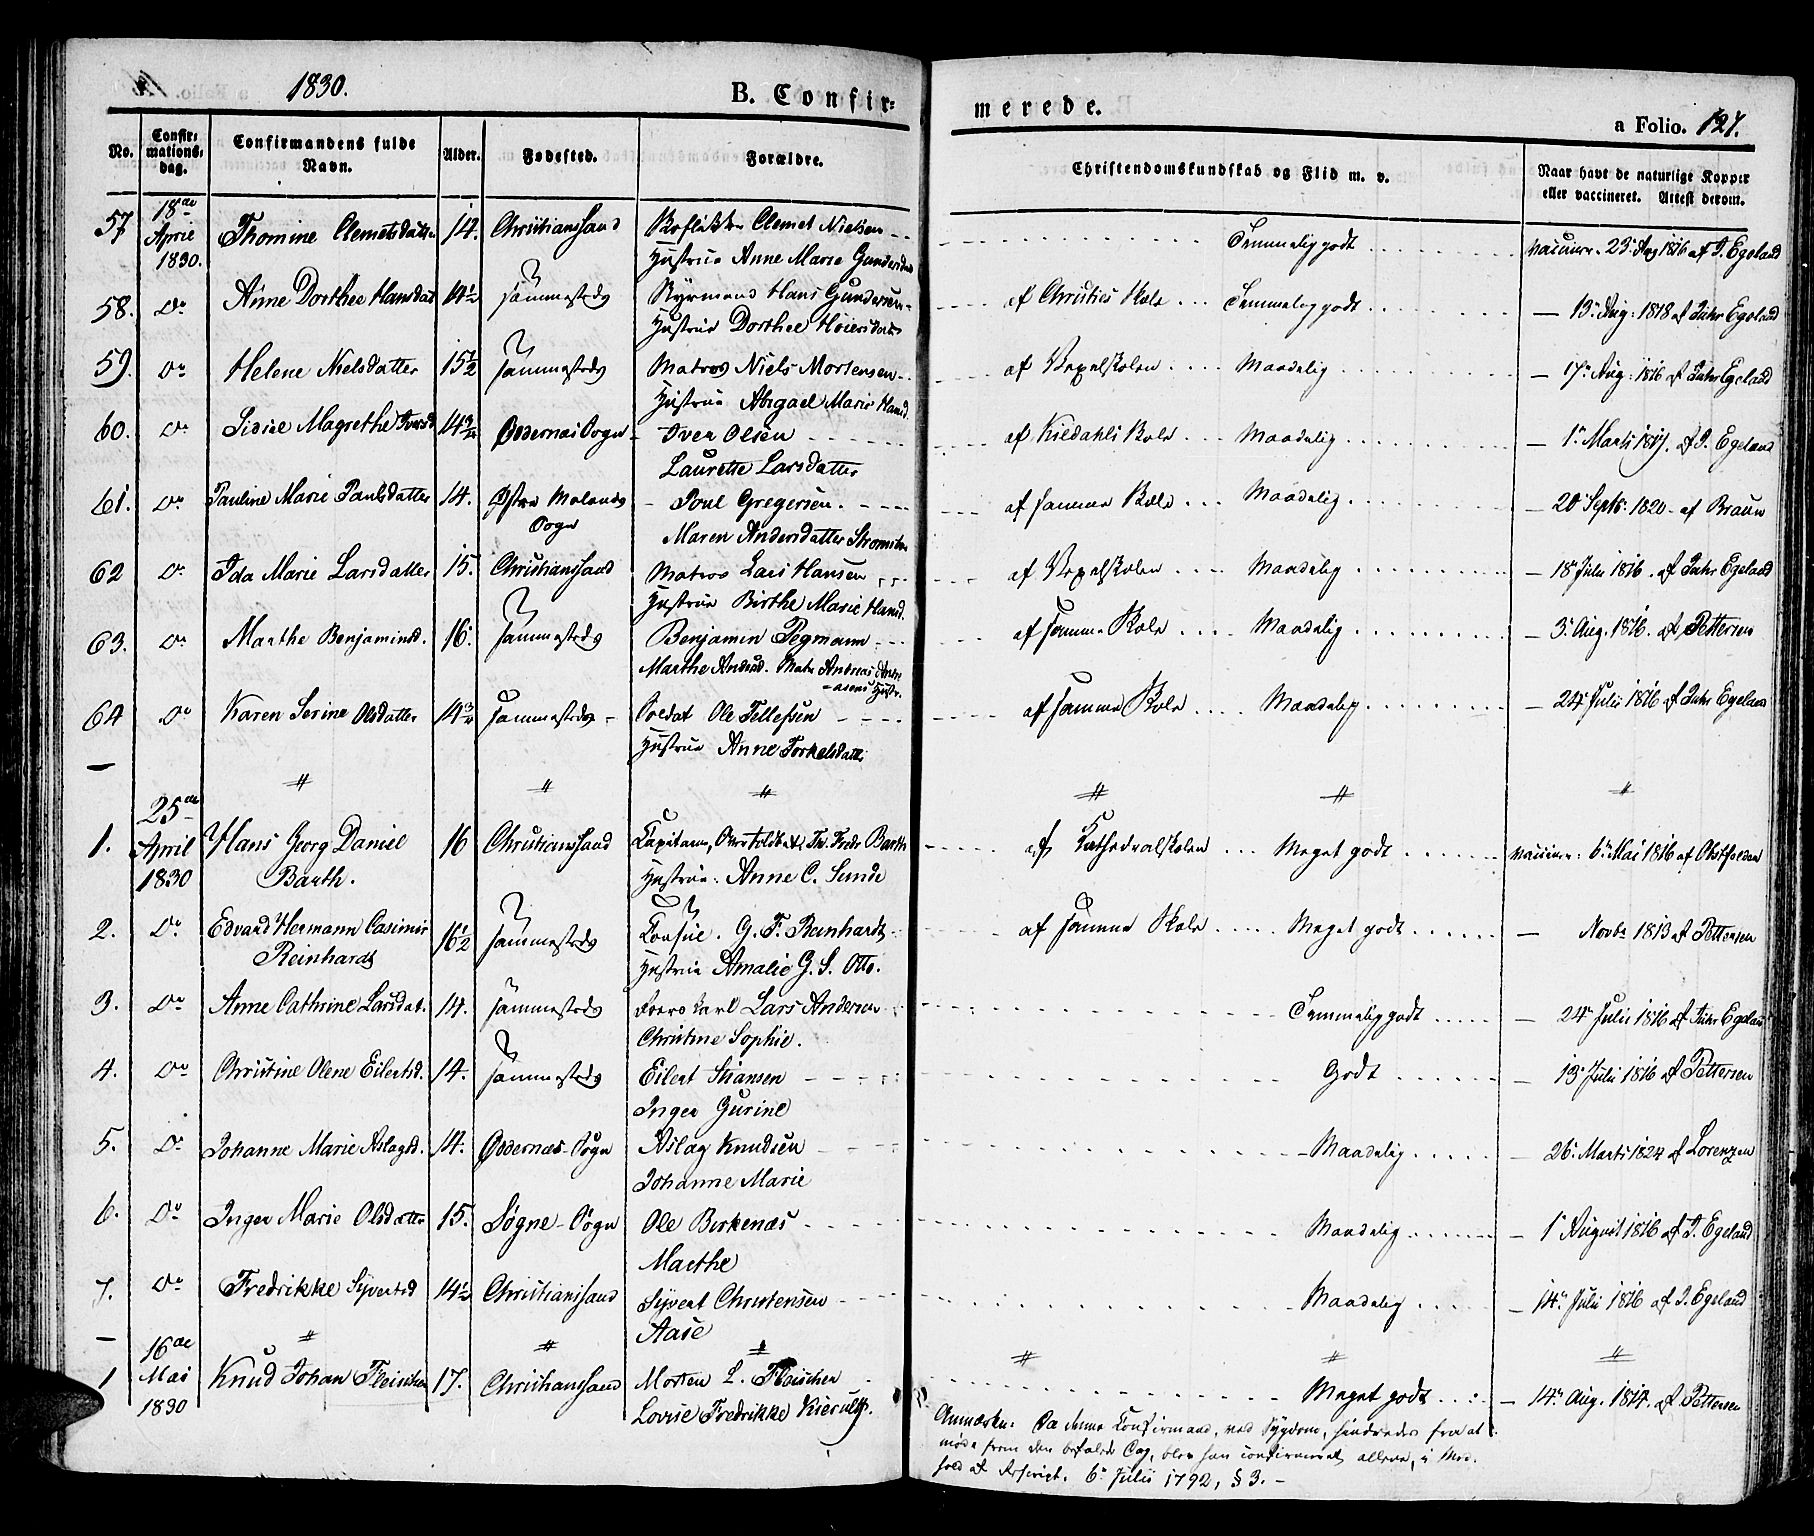 1830.
B. Confir-
merede.
a Folio. 127.
No.
Confir-
mations-
dag.
Confirmandens fulde
Navn.
Alder.
Fødested.
Forældre.
Christendomskundskab og Flid m. v.
Naar havt de naturlige Kopper
eller vaccineret. Attest derom.
57 18de April 1830. Thomine Clemetsdatter 14. Christianssand Clemet Nielsen Temmelig godt vacciner: 23 Aug 1816 af J. Egeland
Hustrue Anne Marie Gundersdat
58. Do Anne Dorthee Hansdat 14½ sammesteds Hans Gundersen af Christies Skole Temmelig godt — 13 Aug: 1818 af Jahr Egeland
Hustrue Dorthee Hoiersdatter
59. Do Helene Nielsdatter 15½ sammesteds Matros Niels Mortensen af Vexelskolen Maadelig — 17 Aug: 1816 af Jahr Egeland
Hustrue Abigael Marie Hansd.
60. Do Sidsel Magrethe Iversd 14¾ Oddernes Sogn Iver Olsen af Kieldahls Skole Maadelig — 1 Marts 1817. af J. Egeland
Laurette Larsdatter
61. Do Pauline Marie Paulsdatter 14. Østre Molands Sogn Poul Gregersen. af samme Skole Maadelig — 20 Septb: 1820 af Braun
Maren Andersdatter
62 Do Ida Marie Larsdatter 15. Christianssand Matros Lars Hansen af Vexelskolen Maadelig — 18 Julii 1816. af Jahr Egeland
Hustrue Birthe Marie Hansd.
63. Do Marthe Benjaminsd. 16. sammesteds Benjamin Pegmann af samme Skole Maadelig — 3 Aug. 1816. af Pettersen
Marthe Andersd. Matr Andreas Andreasens Hustr.
64 Do Karen Serine Olsdatter 14¾ sammesteds Soldat Ole Tellefsen af samme Skole Maadelig — 24 Julii 1816 af Jahr Egeland
Hustrue Anne Torkelsdatter
— " " " " " "
1. 25de April 1830 Hans Georg Daniel Barth. 16 Christianssand Capitain Fr. Fredr Barth af Kathedralskolen Meget godt vacciner: 6 Mai 1816 af Obstfelder
Hustrue: Anne C. Sunde
2. Do Edvard Hermann Casimir Reinhardt 16½ sammesteds Consul. G. F. Reinhardt af samme Skole Meget godt — Novbr 1813 af Pettersen
Hustrue Amalie G. S. Otto.
3. Do Anne Cathrine Larsdat. 14. sammesteds Lars Andersen Temmelig godt — 24 Julii 1816 af Jahr Egeland
Christine Sophie.
4. Do Christine Olene Eilertsd. 14. sammesteds Eilert Stiansen Godt — 13 Julii 1816 af Pettersen
Inger Gurine
5. Do Johanne Marie Aslagsd. 14. Oddernes Sogn Aslag Knudsen Maadelig — 26 Marts 1824 af Lorenzen
Johanne Marie
6. Do Inger Marie Olsdatter 15. Søgne Sogn Ole Birkenæs Maadelig — 1 August 1816 af J. Egeland
Marthe
7. Do Fredrikke Syvertsd 14½ Christianssand Syvert Christensen Maadelig — 14 Julii 1816 af J. Egeland
Aase
— " " " " " "
1 16de Mai 1830 Knud Johan Fleischer 17. Christianssand Morten L. Fleischer Meget godt — 14 Aug. 1814. af Pettersen
Lovise Fredrikke Kierulf.
Anmærkn: Da denne Confirmand, ved Sygdom, hindredes fra at
møde frem den befalede Dag, blev han confirmeret allene, i Med-
hold af Rescript. 6 Julii 1792, § 3.